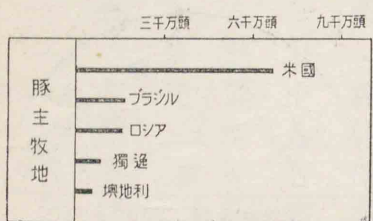 三千万頭 六千万頭 九千万頭
豚主牧地
米國
ブラジル
ロシア
獨逸
墺地利